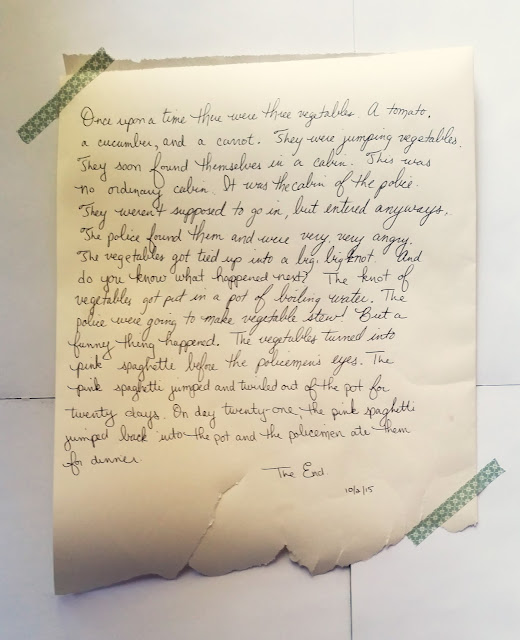 Once upon a time there were three vegetables. A tomato,
a cucumber, and a carrot. They were jumping vegetables.
They soon found themselves in a cabin. This was
no ordinary cabin. It was the cabin of the police.
They weren't supposed to go in, but entered anyways.
The police found them and were very, very angry.
The vegetables got tied up into a big, big knot. And
do you know what happened next? The knot of
vegetables got put in a pot of boiling water. The
police were going to make vegetable stew! But a
funny thing happened. The vegetables turned into
pink spaghetti before the policemen's eyes. The
pink spaghetti jumped and twirled out of the pot for
twenty days. On day twenty-one the pink spaghetti
jumped back into the pot and the policemen ate them
for dinner.
The End.
10/2/15